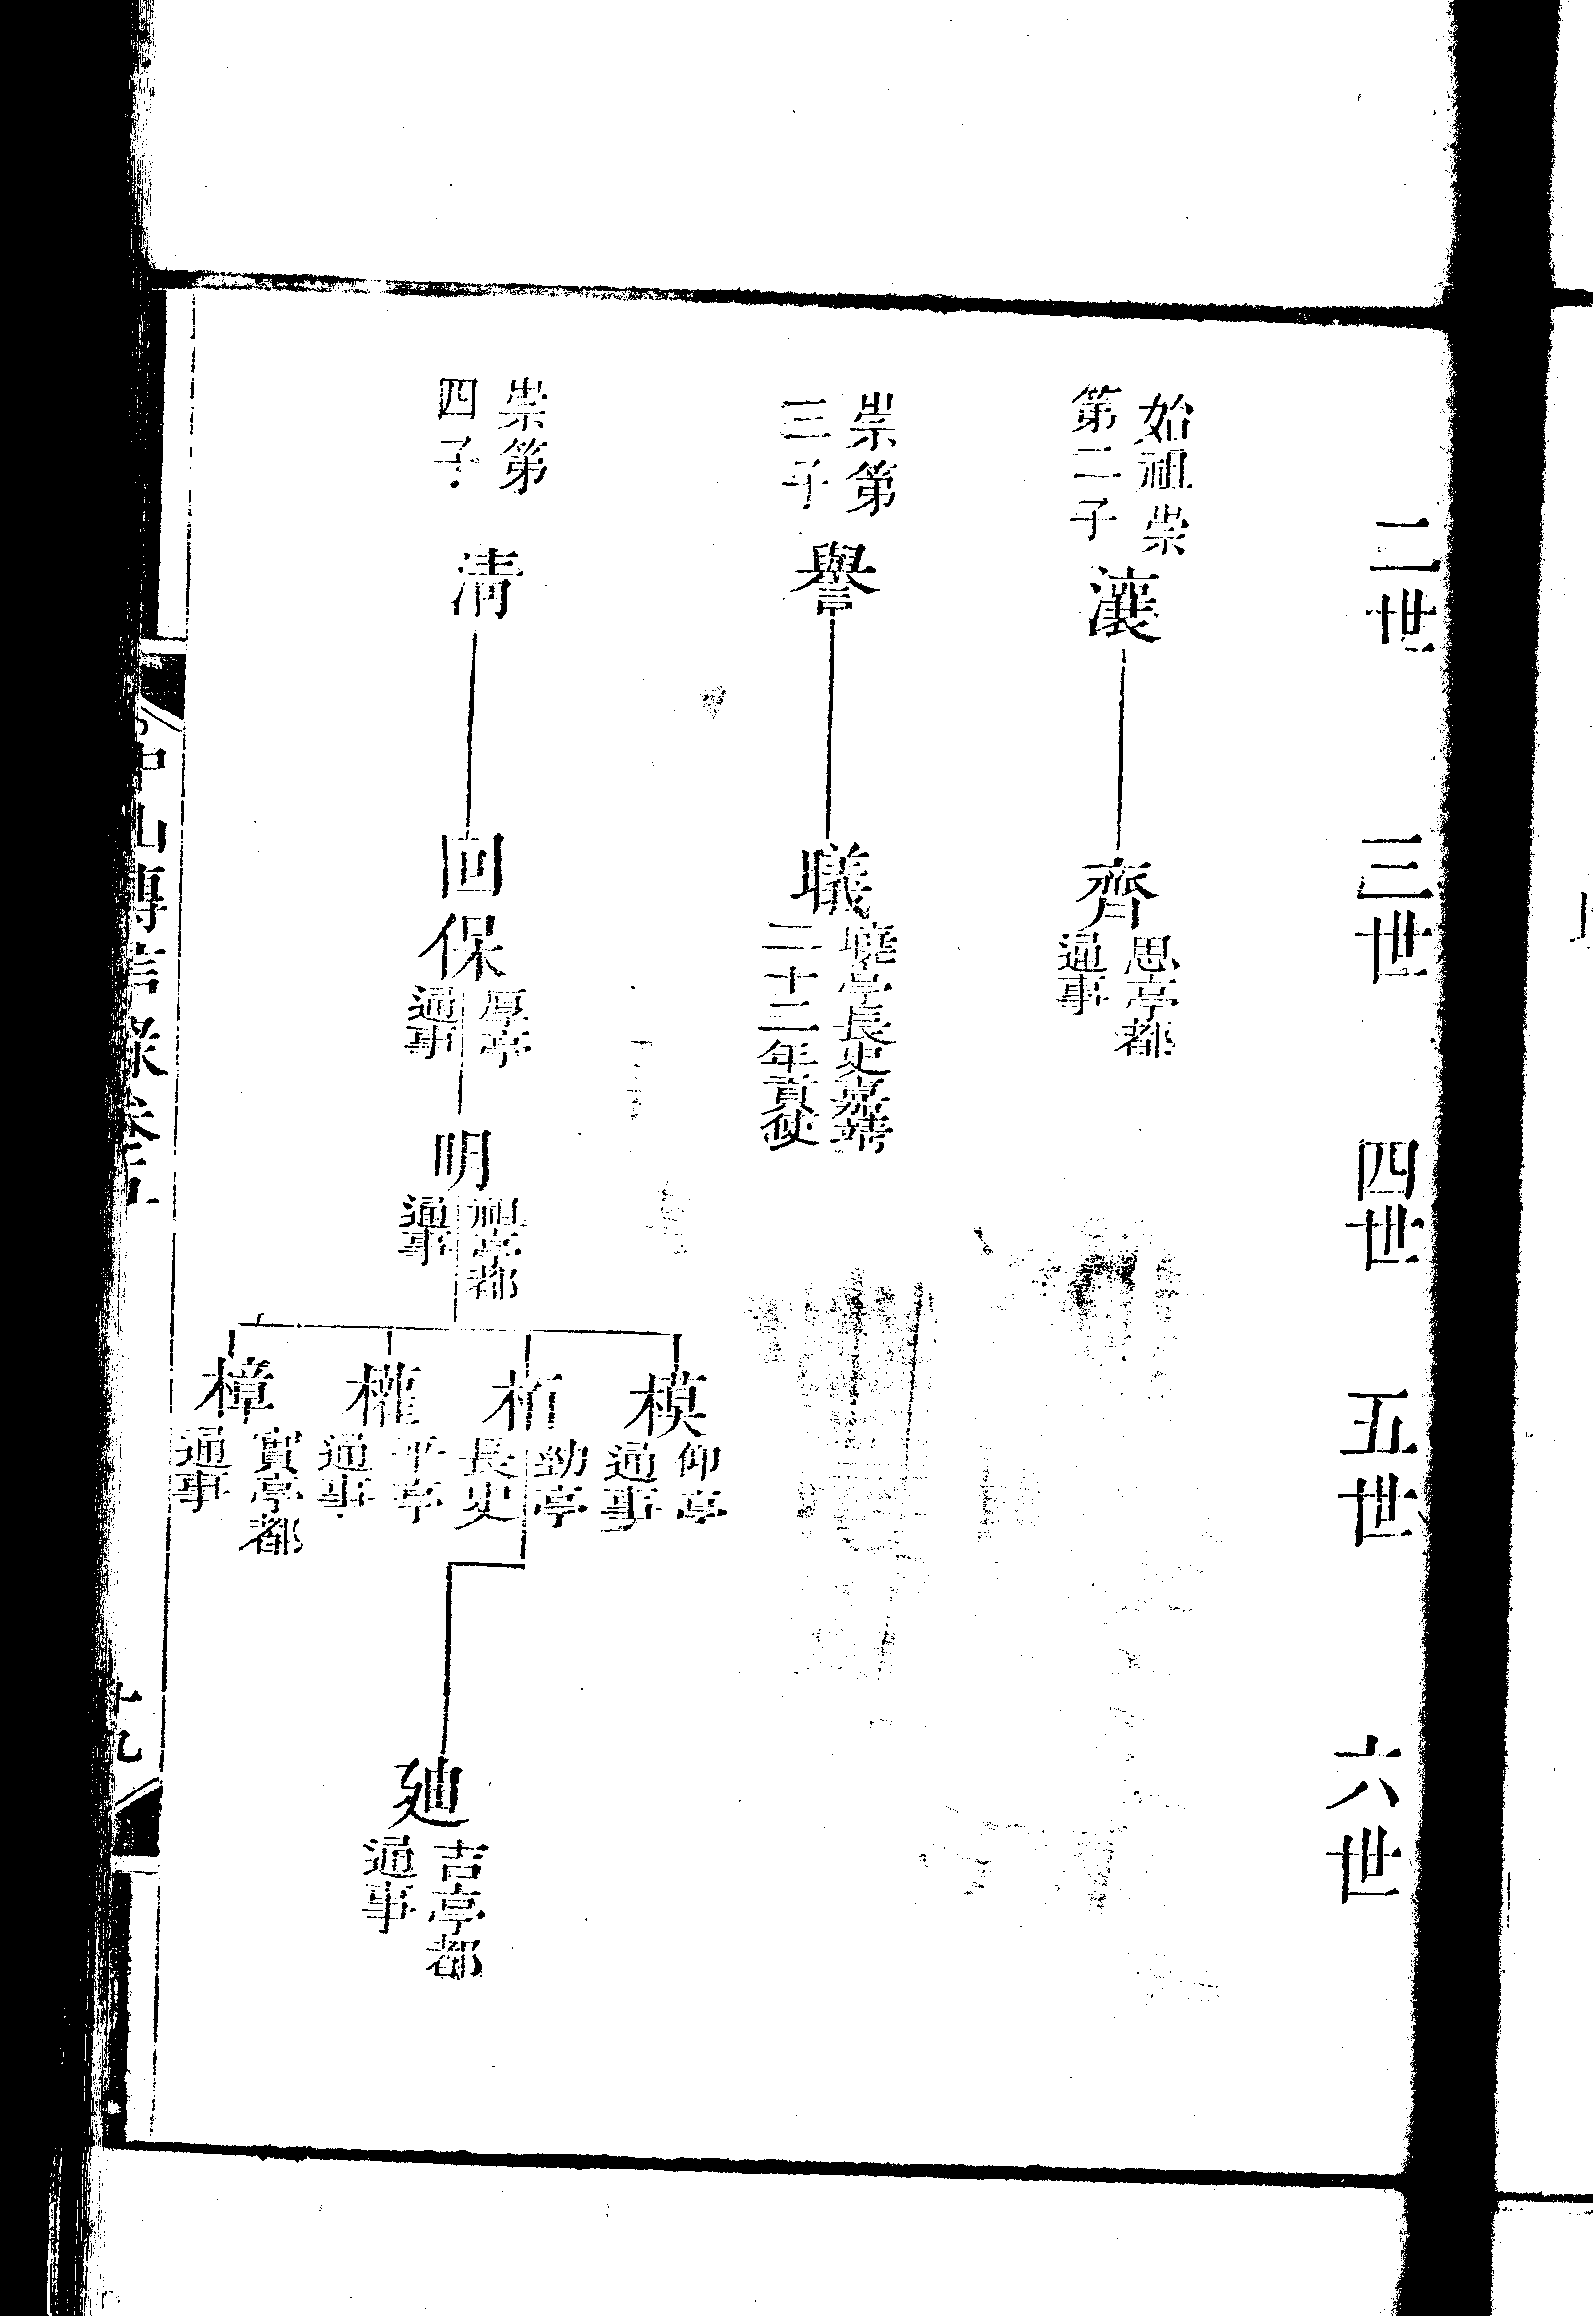 二世
三世
四世
五世
六世
始祖崇
第二子
瀼
齊
思亭都
通事
崇第
三子
譽
曦
曉亭長史嘉靖
二十二年貢使
崇第
四子
清
回保
厚亭
通事
明
祖亭都
通事
模
仰亭
通事
栢
勁亭
長史
權
平亭
通事
樟
實亭都
通事
廸
吉亭都
通事
中山傳信錄卷五
十九